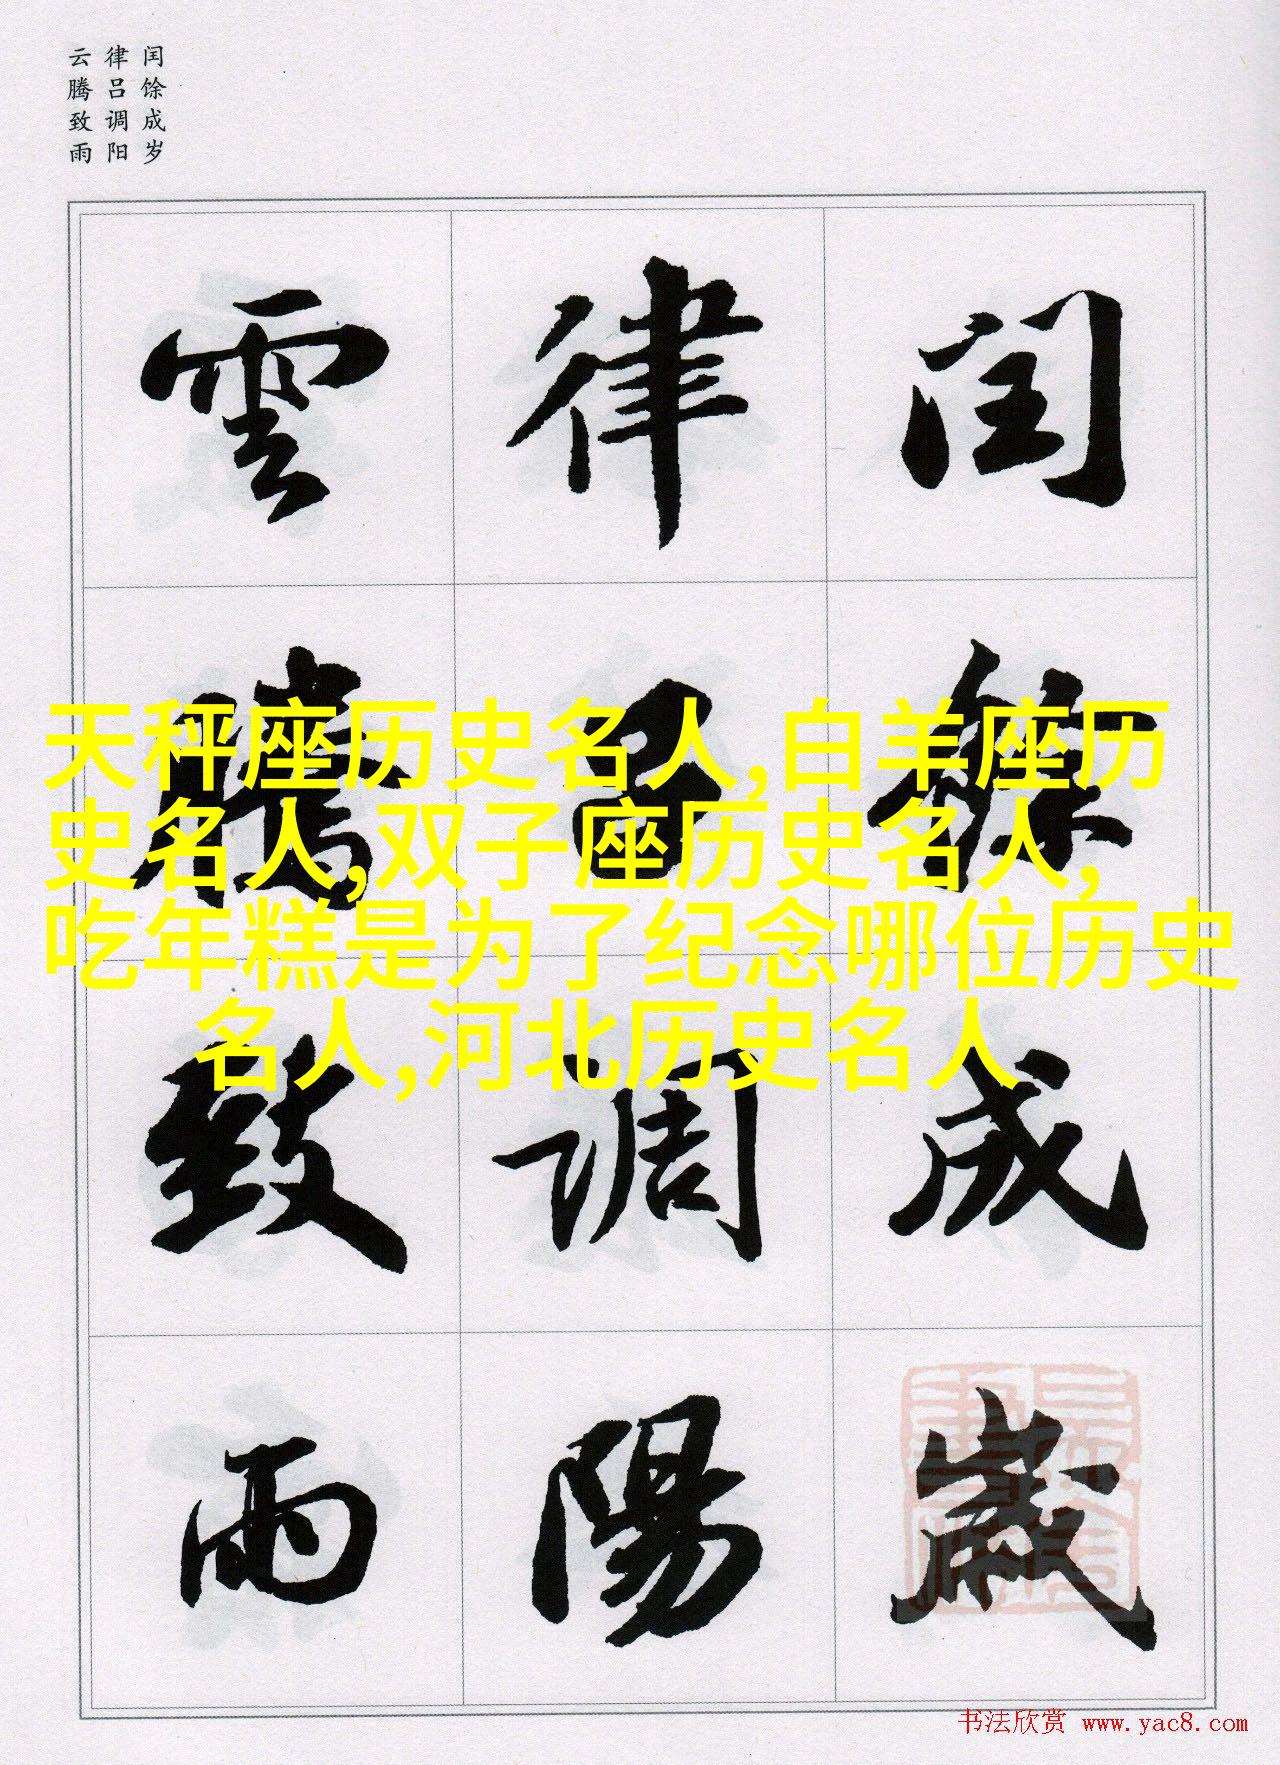 闰馀成岁
律吕调阳
云腾致雨
閏餘成歲
律吕調陽
雲騰致雨
天秤座历史名人,白羊座历
史名人,双子座历史名人,
吃年糕是为了纪念哪位历史
名人,河北历史名人
书法欣赏 www.yac8.com